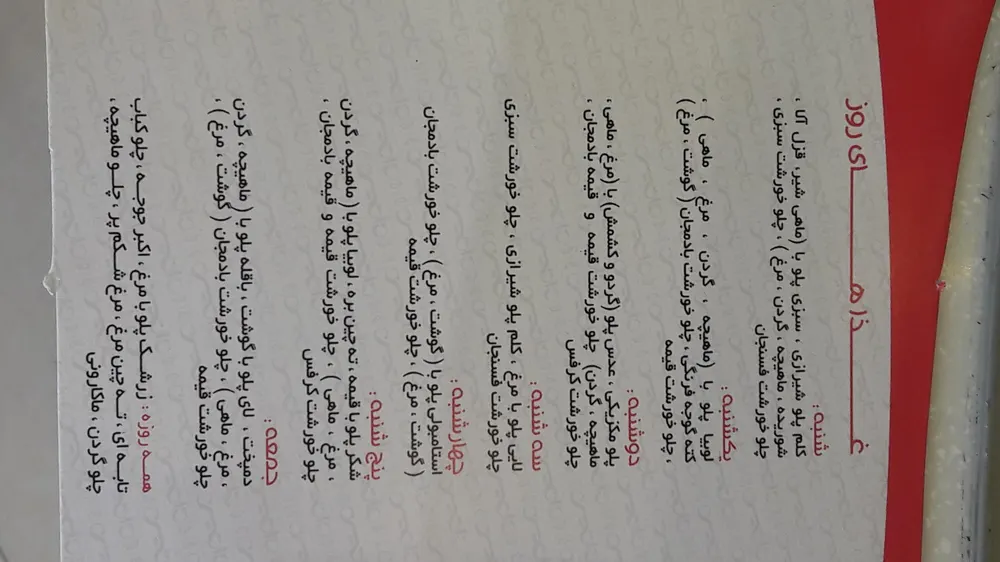 غـــــذاهـــــــای روز
شنبه :
کلم پلو شیرازی ، سبزی پلو با (ماهی شیر، قزل آلا ،
شوریده ، ماهیچه ، گردن ، مرغ ) ، چلو خورشت سبزی ،
چلو خورشت فسنجان
یکشنبه :
لوبیا پلو با (ماهیچه ، گردن ، مرغ ، ماهی ) ،
کته گوجه فرنگی ، چلو خورشت بادمجان (گوشت ، مرغ)
، چلو خورشت قیمه
دوشنبه :
پلو مکزیکی ، عدس پلو (گردو و کشمش) با (مرغ ، ماهی ،
ماهیچه ، گردن) چلو خورشت قیمه و قیمه بادمجان ،
چلو خورشت کرفس
سه شنبه :
لابی پلو با مرغ ، کلم پلو شیرازی ، چلو خورشت سبزی
چلو خورشت فسنجان
چهارشنبه :
استامبولی پلو با ( گوشت ، مرغ ) ، چلو خورشت بادمجان
( گوشت ، مرغ ) ، چلو خورشت قیمه
پنج شنبه :
شکر پلو با قیمه ، ته چین بره ، لوبیا پلو با ( ماهیچه ، گردن
، مرغ ، ماهی ) ، چلو خورشت قیمه و قیمه بادمجان ،
چلو خورشت کرفس
جمعه :
دمپخت ، لای پلو با گوشت ، باقله پلو با ( ماهیچه ، گردن
، مرغ ، ماهی ) ، چلو خورشت بادمجان ( گوشت ، مرغ ) ،
چلو خورشت قیمه
همـه روزه : زرشـک پلو با مرغ ، اکبر جوجـه ، چلو کباب
تابـه ای ، تـه چین مرغ ، مرغ شـکم پر ، چلـو ماهیچه ،
چلو گردن ، ماکارونی